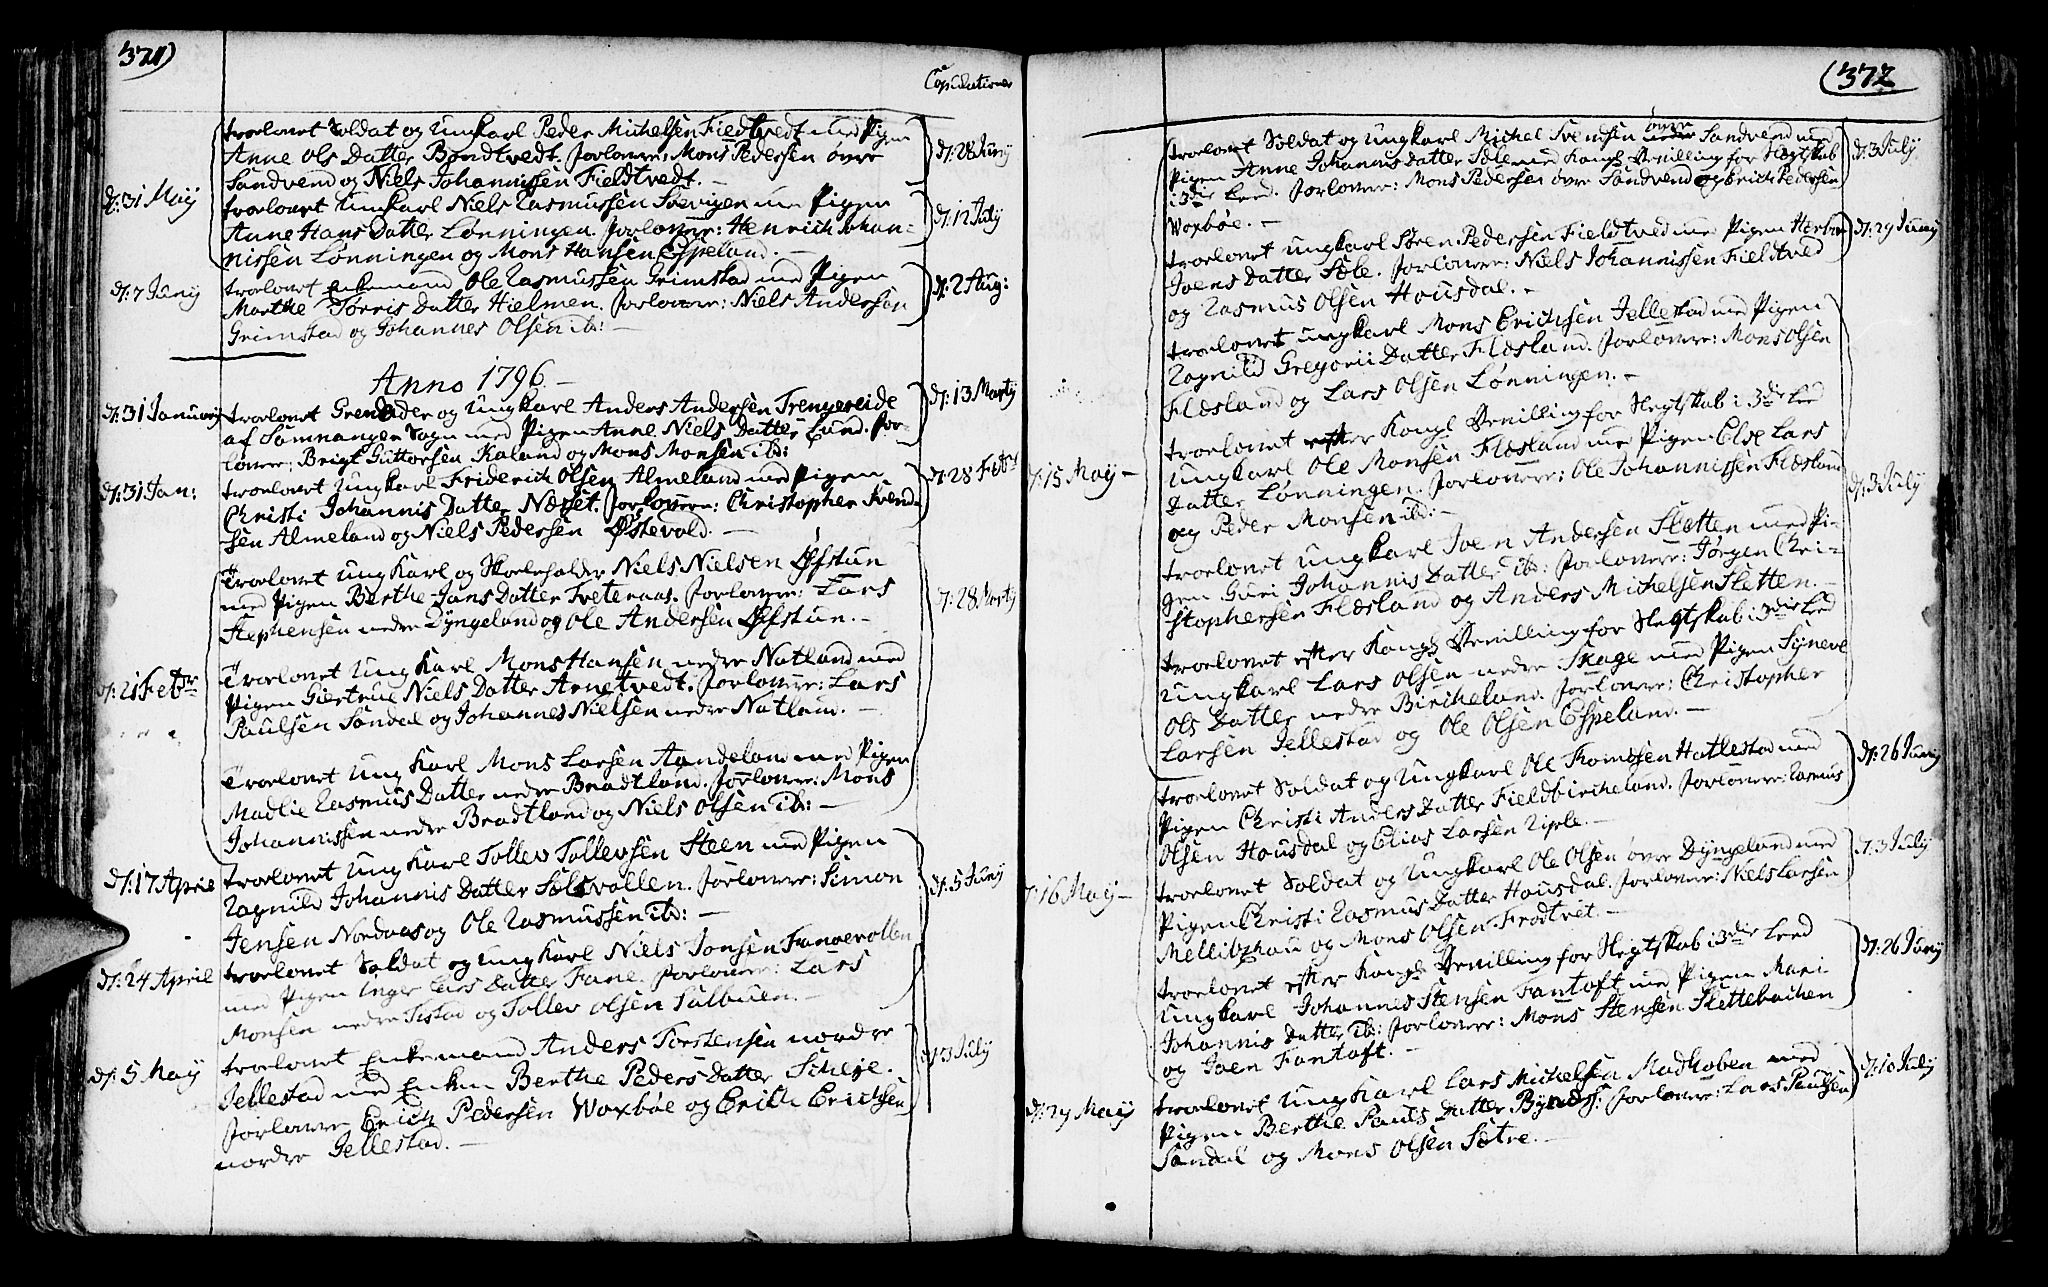 371)
Copulationer
trovlovet Soldat og Ungkarl Peder Michelsen Fieldtvedt med Pigen
Anne Ols Datter Bøndtvedt. Forlovere: Mons Pedersen øvre
Sandvend og Niels Johannissen Fieldtvedt. —
d: 28 Juny
d: 31 Maij
trovlovet Ungkarl Niels Rasmussen med Pigen
Anne Hans Datter Lønningen. Forlovere: Henrich Johan-
nissen Lønningen og Mons Hansen Espeland. —
d: 12 July
d: 7 Juny
trovlovet Enkemand Ole Rasmussen Grimstad med Pigen
Marthe Tørris Datter Hielmen. Forlovere: Niels Andersen
Grimstad og Johannes Olsen ib: —
d: 2 Aug:
Anno 1796 —
d: 31 Januarij
trovlovet Grenadeer og Ungkarl Anders Andersen Trengereide
af Samnanger Sogn med Pigen Anne Niels Datter Lund. For-
lovere: Brigt Guttorsen Kaland og Mons Monsen ib:
d: 13 Martij
d: 31 Jan:
trovlovet Ungkarl Friderich Olsen Almeland med Pigen
Christi Johannis Datter Nærset. Forlovere: Christopher Svend-
sen Almeland og Niels Pedersen Østevold. —
d: 28 Febr
Trovlovet Ung Karl og Skoleholder Niels Nielsen Øfstun
med Pigen Berthe Jans Datter Tveteraas. Forlovere: Lars
Stephensen nedre Dyngeland og Ole Andersen Øfstun. —
d: 28 Martij
d: 21 Febr
Trovlovet Ung Karl Mons Hansen nedre Natland med
Pigen Giertrue Niels Datter Arnetvedt. Forlovere: Lars
Paulsen Sandal og Johannes Nielsen nedre Natland. —
Trovlovet Ung Karl Mons Larsen Aandeland med Pigen
Madlie Rasmus Datter nedre Bradtland. Forlovere: Mons
Johannissen nedre Bradtland og Niels Olsen ib: —
d: 17 April
trovlovet Ung Karl Tollev Tollevsen Steen med Pigen
Ragnild Johannis Datter Sælsvollen. Forlovere: Simon
Jensen Nordaas og Ole Rasmussen ib: —
d: 5 Juny
d: 24 April
trovlovet Soldat og Ung Karl Niels Jonsen Fanevollen
med Pigen Inger Lars Datter Fane. Forlovere: Lars
Monsen nedre Titlestad og Tollev Olsen Salbuen. —
d: 5 Maij
trovlovet Enkemand Anders Torstensen nordre
Jellestad med Enken Berthe Peders Datter Scheje.
Forlovere Erich Pedersen Woxbøe og Erich Erichsen
nordre Jellestad. —
d: 3 July
(372
trovlovet Soldat og Ungkarl Michel Svendsen øvre Sandvend med
Pigen Anne Johannis Datter Sæle med Kongl. Bevilling for Slegtskab
i 3die Leed. Forlovere: Mons Pedersen øvre Sandvend og Erich Pedersen
Woxbøe. —
d: 3 July
trovlovet Ungkarl Søren Pedersen Fieldtved med Pigen Herbor
Joens Datter Sæle. Forlovere: Niels Johannissen Fieldtved
og Rasmus Olsen Housdal. —
d: 29 Juny
trovlovet Ungkarl Mons Erichsen Jellestad med Pigen
Ragnild Gregorii Datter Flæsland. Forlovere: Mons Olsen
Flæsland og Lars Olsen Lønningen. —
d: 15 Maij —
trovlovet efter Kongl Bevilling for Slegtskab i 3die Led
Ungkarl Ole Monsen Flæsland med Pigen Else Lars
Datter Lønningen. Forlovere: Ole Johannissen Flæsland
og Peder Monsen ib: —
d: 3 July
trovlovet Ungkarl Joen Andersen Sletten med Pi-
gen Guri Johannis Datter ib: Forlovere: Jørgen Chri-
stophersen Flæsland og Anders Michelsen Sletten. —
trovlovet efter Kongl Bevilling for Slegtskab i 3die Led
Ungkarl Lars Olsen nedre Skage med Pigen Syneve
Ols Datter nedre Bircheland. Forlovere: Christopher
Larsen Jellestad og Ole Olsen Espeland. —
trovlovet Soldat og Ungkarl Ole Thomæsen Hatlestad med
Pigen Christi Anders Datter Fieldbircheland. Forlovere: Rasmus
Olsen Housdal og Elias Larsen Riple. —
d: 26 Juny
d: 16 Maij —
trovlovet Soldat og Ungkarl Ole Olsen øvre Dyngeland med
Pigen Christi Rasmus Datter Housdal. Forlovere: Niels Larsen
Mellibzhau og Mons Olsen Frodtvet. —
d: 3 July
trovlovet efter Kongl Bevilling for Slegtskab i 3die Leed
Ungkarl Johannes Stensen Fantoft med Pigen Mari
Johannis Datter ib: Forlovere: Mons Stensen Slettebachen
og Joen Fantoft. —
d: 26 Juny
d: 29 Maij
trovlovet Ung Karl Lars Michelsen Madhoben med
Pigen Berthe Pauls Datter Bynes: Forlovere: Lars Paulsen
Sandal og Mons Olsen Sætre. —
d: 10 July